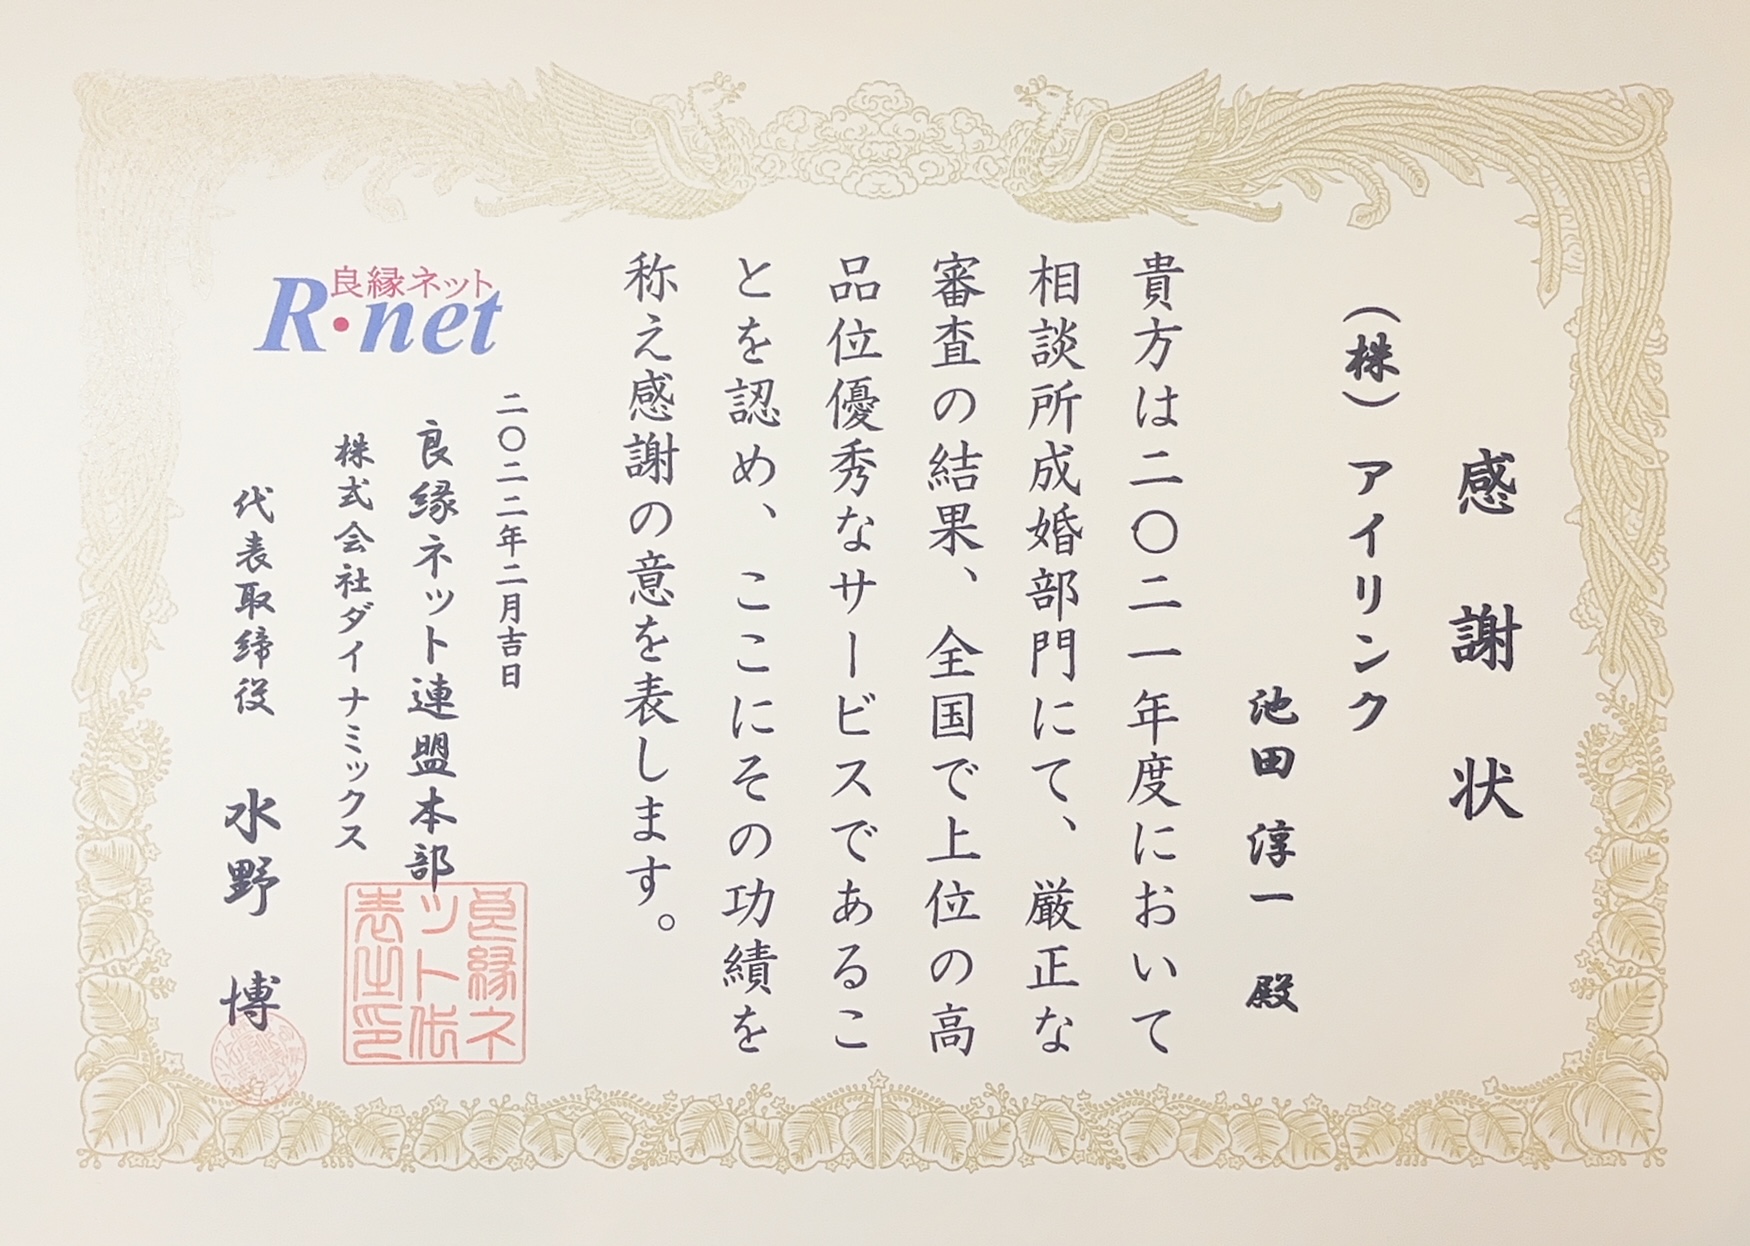 感謝状
（株）アイリンク
池田 淳一 殿
貴方は二〇二一年度において
相談所成婚部門にて、厳正な
審査の結果、全国で上位の高
品位優秀なサービスであるこ
とを認め、ここにその功績を
称え感謝の意を表します。
二〇二二年二月吉日
良縁ネット
R・net
良縁ネット連盟本部
株式会社ダイナミックス
代表取締役 水野 博
良縁ネ
ット代
表之印